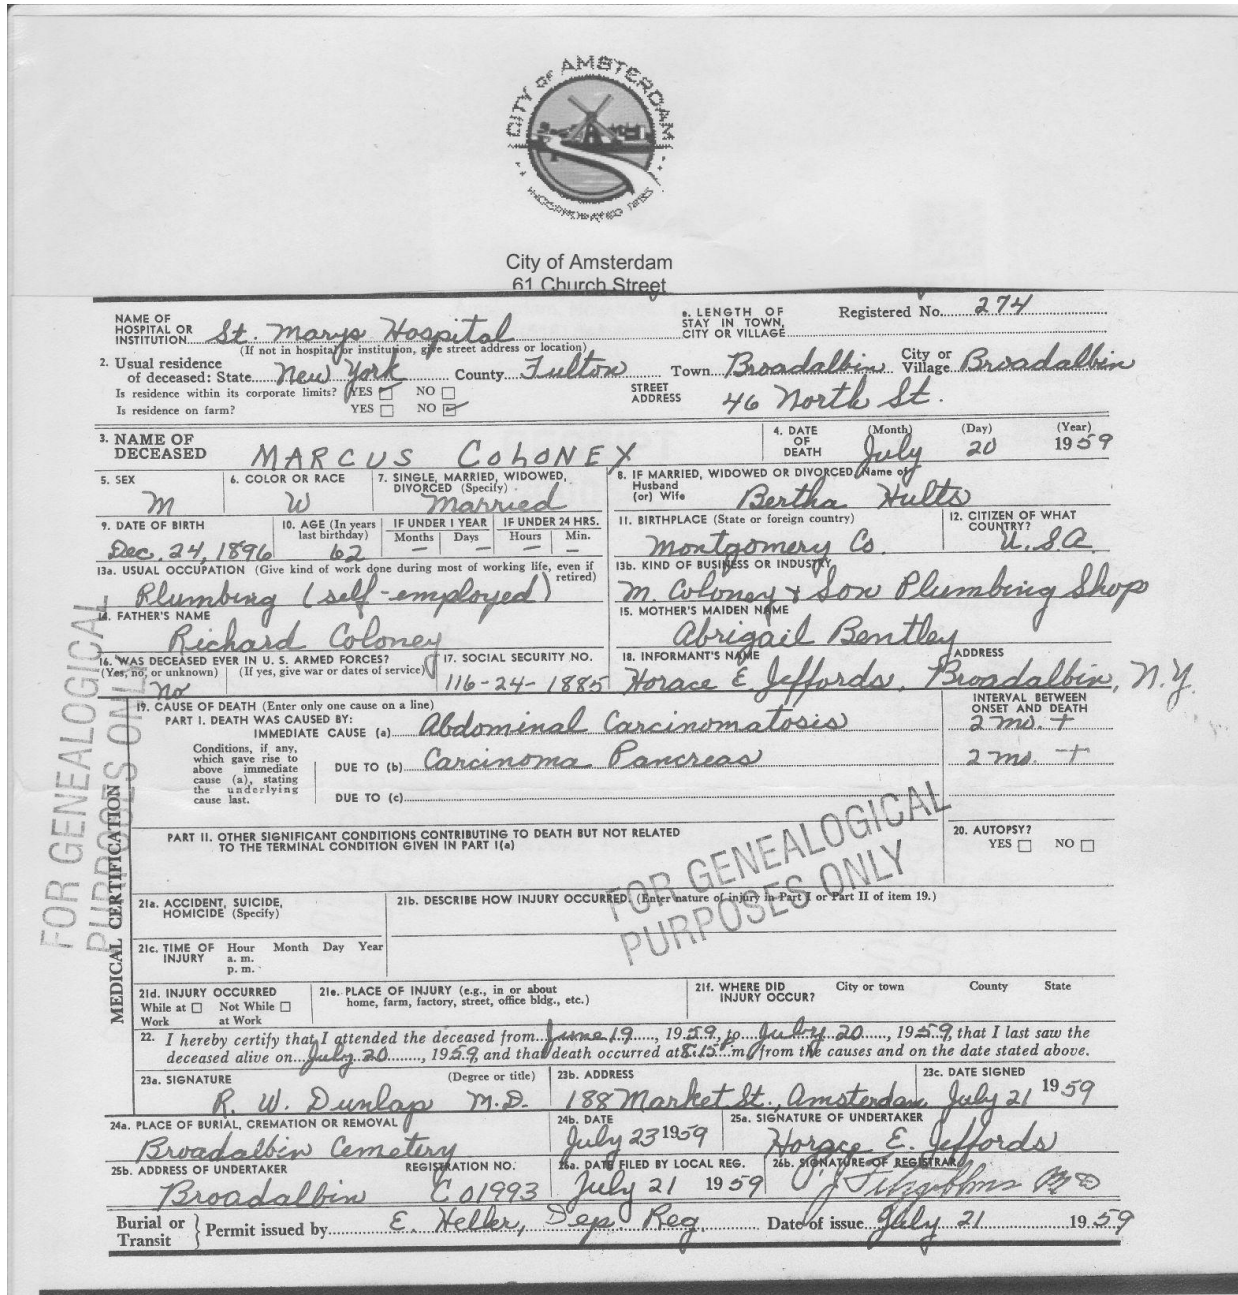 CITY OF AMSTERDAM
INCORPORATED 1885
City of Amsterdam
61 Church Street
NAME OF HOSPITAL OR INSTITUTION St. Marys Hospital
(If not in hospital or institution, give street address or location)
e. LENGTH OF STAY IN TOWN, CITY OR VILLAGE
Registered No. 274
2. Usual residence of deceased: State New York County Fulton Town Broadalbin City or Village Broadalbin
Is residence within its corporate limits? YES NO
STREET ADDRESS 46 North St.
Is residence on farm? YES NO
3. NAME OF DECEASED MARCUS COLONEY
4. DATE OF DEATH (Month) (Day) (Year) July 20 1959
5. SEX M
6. COLOR OR RACE W
7. SINGLE, MARRIED, WIDOWED, DIVORCED (Specify) Married
8. IF MARRIED, WIDOWED OR DIVORCED Name of Husband (or) Wife Bertha Hults
9. DATE OF BIRTH Dec. 24, 1896
10. AGE (In years last birthday) 62
IF UNDER 1 YEAR Months – Days –
IF UNDER 24 HRS. Hours – Min. –
11. BIRTHPLACE (State or foreign country) Montgomery Co.
12. CITIZEN OF WHAT COUNTRY? U.S.A.
13a. USUAL OCCUPATION (Give kind of work done during most of working life, even if retired) Plumbing (self-employed)
13b. KIND OF BUSINESS OR INDUSTRY M. Coloney + Son Plumbing Shop
14. FATHER'S NAME Richard Coloney
15. MOTHER'S MAIDEN NAME Abrigail Bentley
16. WAS DECEASED EVER IN U. S. ARMED FORCES? (Yes, no, or unknown) (If yes, give war or dates of service) No
17. SOCIAL SECURITY NO. 116-24-1885
18. INFORMANT'S NAME ADDRESS Horace E. Jeffords, Broadalbin, N.Y.
MEDICAL CERTIFICATION
19. CAUSE OF DEATH (Enter only one cause on a line)
INTERVAL BETWEEN ONSET AND DEATH
PART I. DEATH WAS CAUSED BY:
IMMEDIATE CAUSE (a) Abdominal Carcinomatosis 2 mo. +
Conditions, if any, which gave rise to above immediate cause (a), stating the underlying cause last.
DUE TO (b) Carcinoma Pancreas 2 mo. +
DUE TO (c)
PART II. OTHER SIGNIFICANT CONDITIONS CONTRIBUTING TO DEATH BUT NOT RELATED TO THE TERMINAL CONDITION GIVEN IN PART I(a)
20. AUTOPSY? YES NO
FOR GENEALOGICAL PURPOSES ONLY
FOR GENEALOGICAL PURPOSES ONLY
21a. ACCIDENT, SUICIDE, HOMICIDE (Specify)
21b. DESCRIBE HOW INJURY OCCURRED. (Enter nature of injury in Part I or Part II of item 19.)
21c. TIME OF INJURY Hour Month Day Year a. m. p. m.
21d. INJURY OCCURRED While at Work Not While at Work
21e. PLACE OF INJURY (e.g., in or about home, farm, factory, street, office bldg., etc.)
21f. WHERE DID INJURY OCCUR? City or town County State
22. I hereby certify that I attended the deceased from June 19, 1959, to July 20, 1959, that I last saw the
deceased alive on July 20, 1959 and that death occurred at 8:15 m. from the causes and on the date stated above.
23a. SIGNATURE (Degree or title) R. W. Dunlap M.D.
23b. ADDRESS 188 Market St., Amsterdam
23c. DATE SIGNED July 21 1959
24a. PLACE OF BURIAL, CREMATION OR REMOVAL Broadalbin Cemetery
24b. DATE July 23 1959
25a. SIGNATURE OF UNDERTAKER Horace E. Jeffords
25b. ADDRESS OF UNDERTAKER Broadalbin
REGISTRATION NO. C 01993
26a. DATE FILED BY LOCAL REG. July 21 1959
26b. SIGNATURE OF REGISTRAR
Burial or Transit Permit issued by E. Heller, Dep Reg. Date of issue July 21 1959